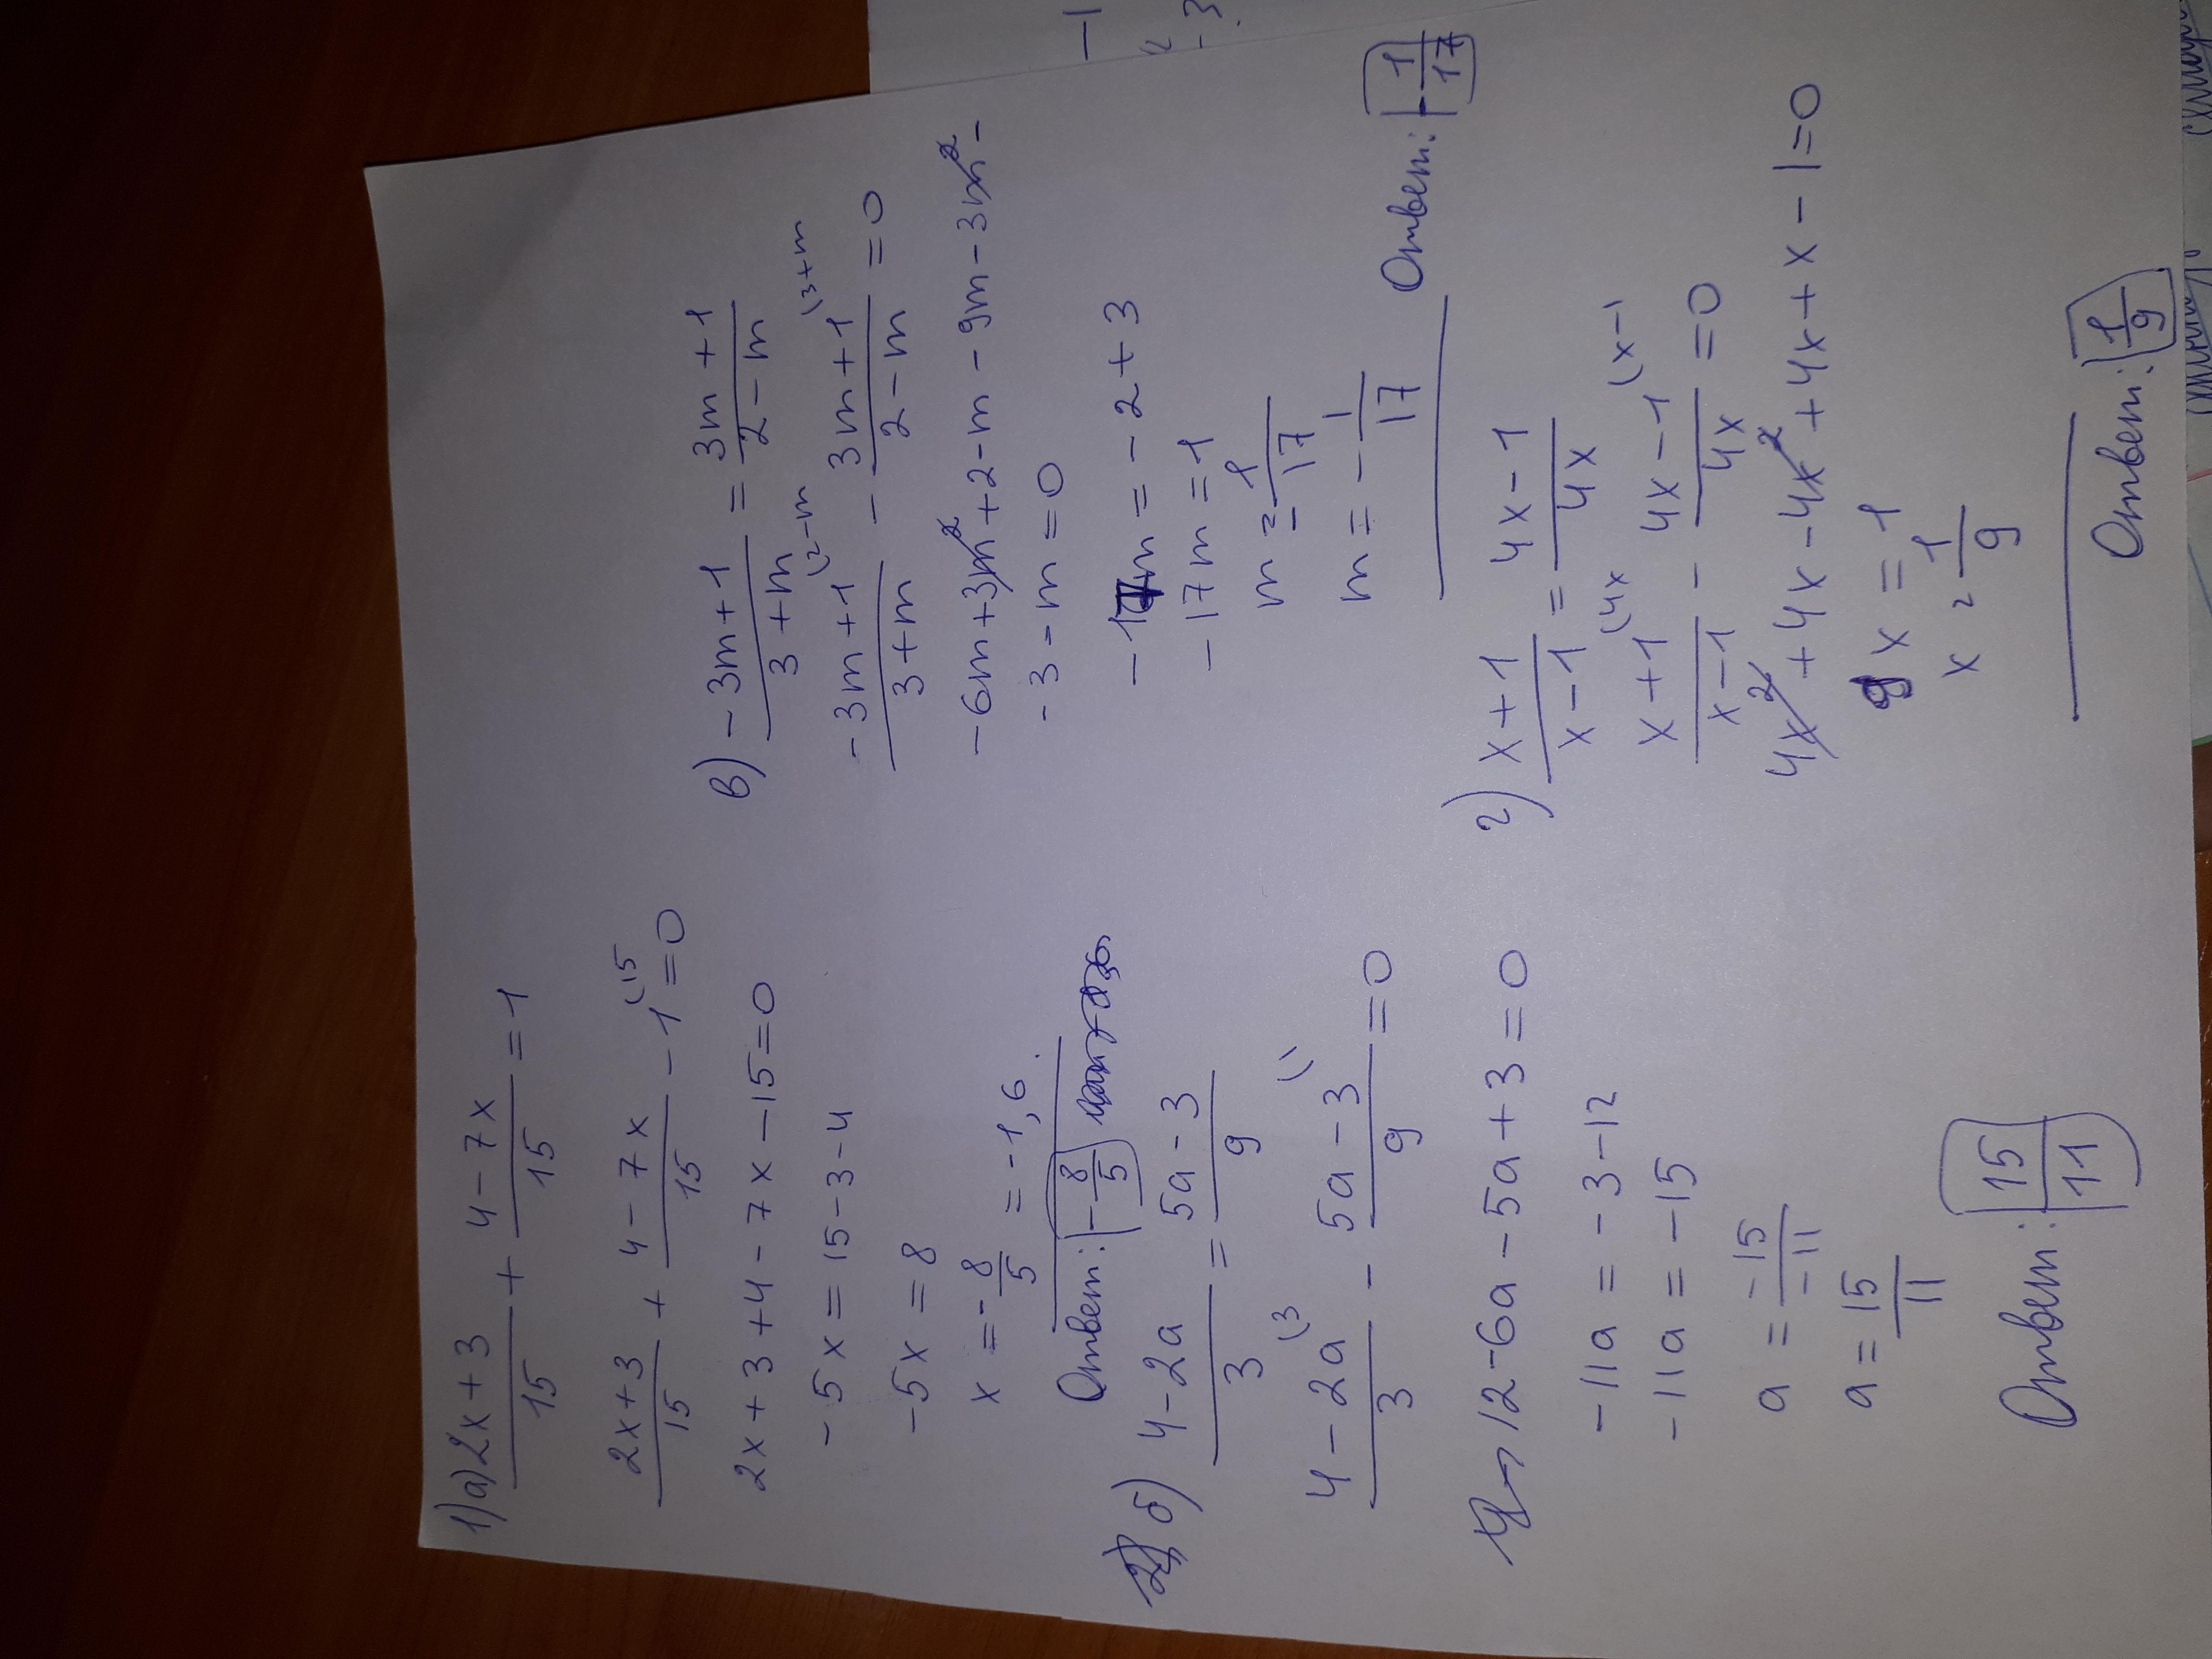 1)а) (2x+3)/15 + (4-7x)/15 = 1
(2x+3)/15 + (4-7x)/15 - 1 (15 = 0
2x+3+4-7x-15=0
-5x=15-3-4
-5x=8
x=-8/5=-1,6.
Ответ: -8/5
б) (4-2a)/3 = (5a-3)/9
(4-2a)/3 (3 - (5a-3)/9 (1 = 0
12-6a-5a+3=0
-11a=-3-12
-11a=-15
a=-15/-11
a=15/11
Ответ: 15/11
в) (-3m+1)/(3+m) = (3m+1)/(2-m)
(-3m+1)/(3+m) (2-m - (3m+1)/(2-m) (3+m = 0
-6m+3m²+2-m-9m-3m²-
-3-m=0
-17m=-2+3
-17m=1
m=1/-17
m=-1/17
Ответ: -1/17
г) (x+1)/(x-1) = (4x-1)/4x
(x+1)/(x-1) (4x - (4x-1)/4x (x-1 = 0
4x²+4x-4x²+4x+x-1=0
9x=1
x=1/9
Ответ: 1/9